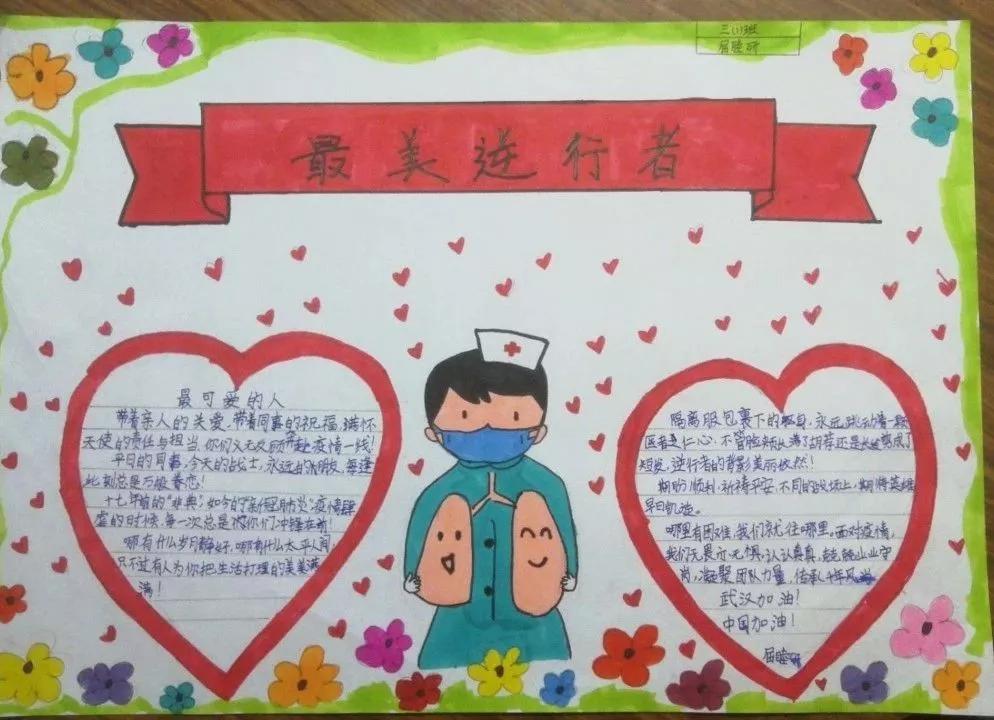 三(1)班
屈睦妍
最美逆行者
最可爱的人
带着亲人的关爲,带着同事的祝福,满怀
天使的责任与担当,你们义无反顾奔赴疫情一线!
平日的同事,今天的战士,永远的朋友,每逢
此刻总是万般眷恋!
十七年前的“非典”,如今的“新冠肺炎”疫情肆
虐的时候,每一次总是你们冲锋在前!
哪有什么岁月静好,哪有什么太平人间,
只不过有人为你把生活打理的美美满
满!
隔离服包裹下的身,永远跳动着一颗
医者仁心,不管脸颊从满了胡荐还是长发剪成了
短发,逆行者的背影美丽依然!
期盼顺利,祈祷平安,不同的战场上,期待英雄
早日凯旋。
哪里有困难,我们就往哪里,面对疫情,
我们无畏亦无惧,认认真真,兢兢业业守
岗,凝聚团队力量,传承
武汉加油!
中国加油!
屈睦妍